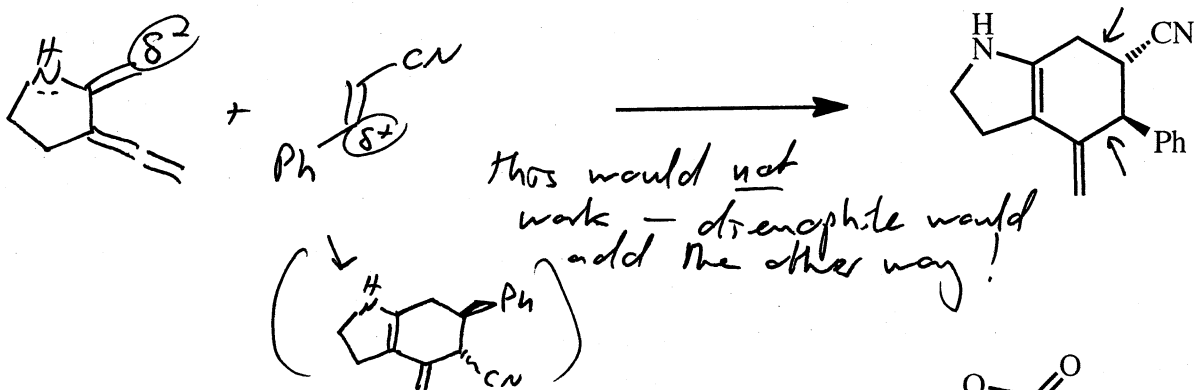 H
N
δ-
+
CN
Ph
δ+
H
N
CN
Ph
this would not
work — dienophile would
add the other way!
H
N
Ph
CN
O
O